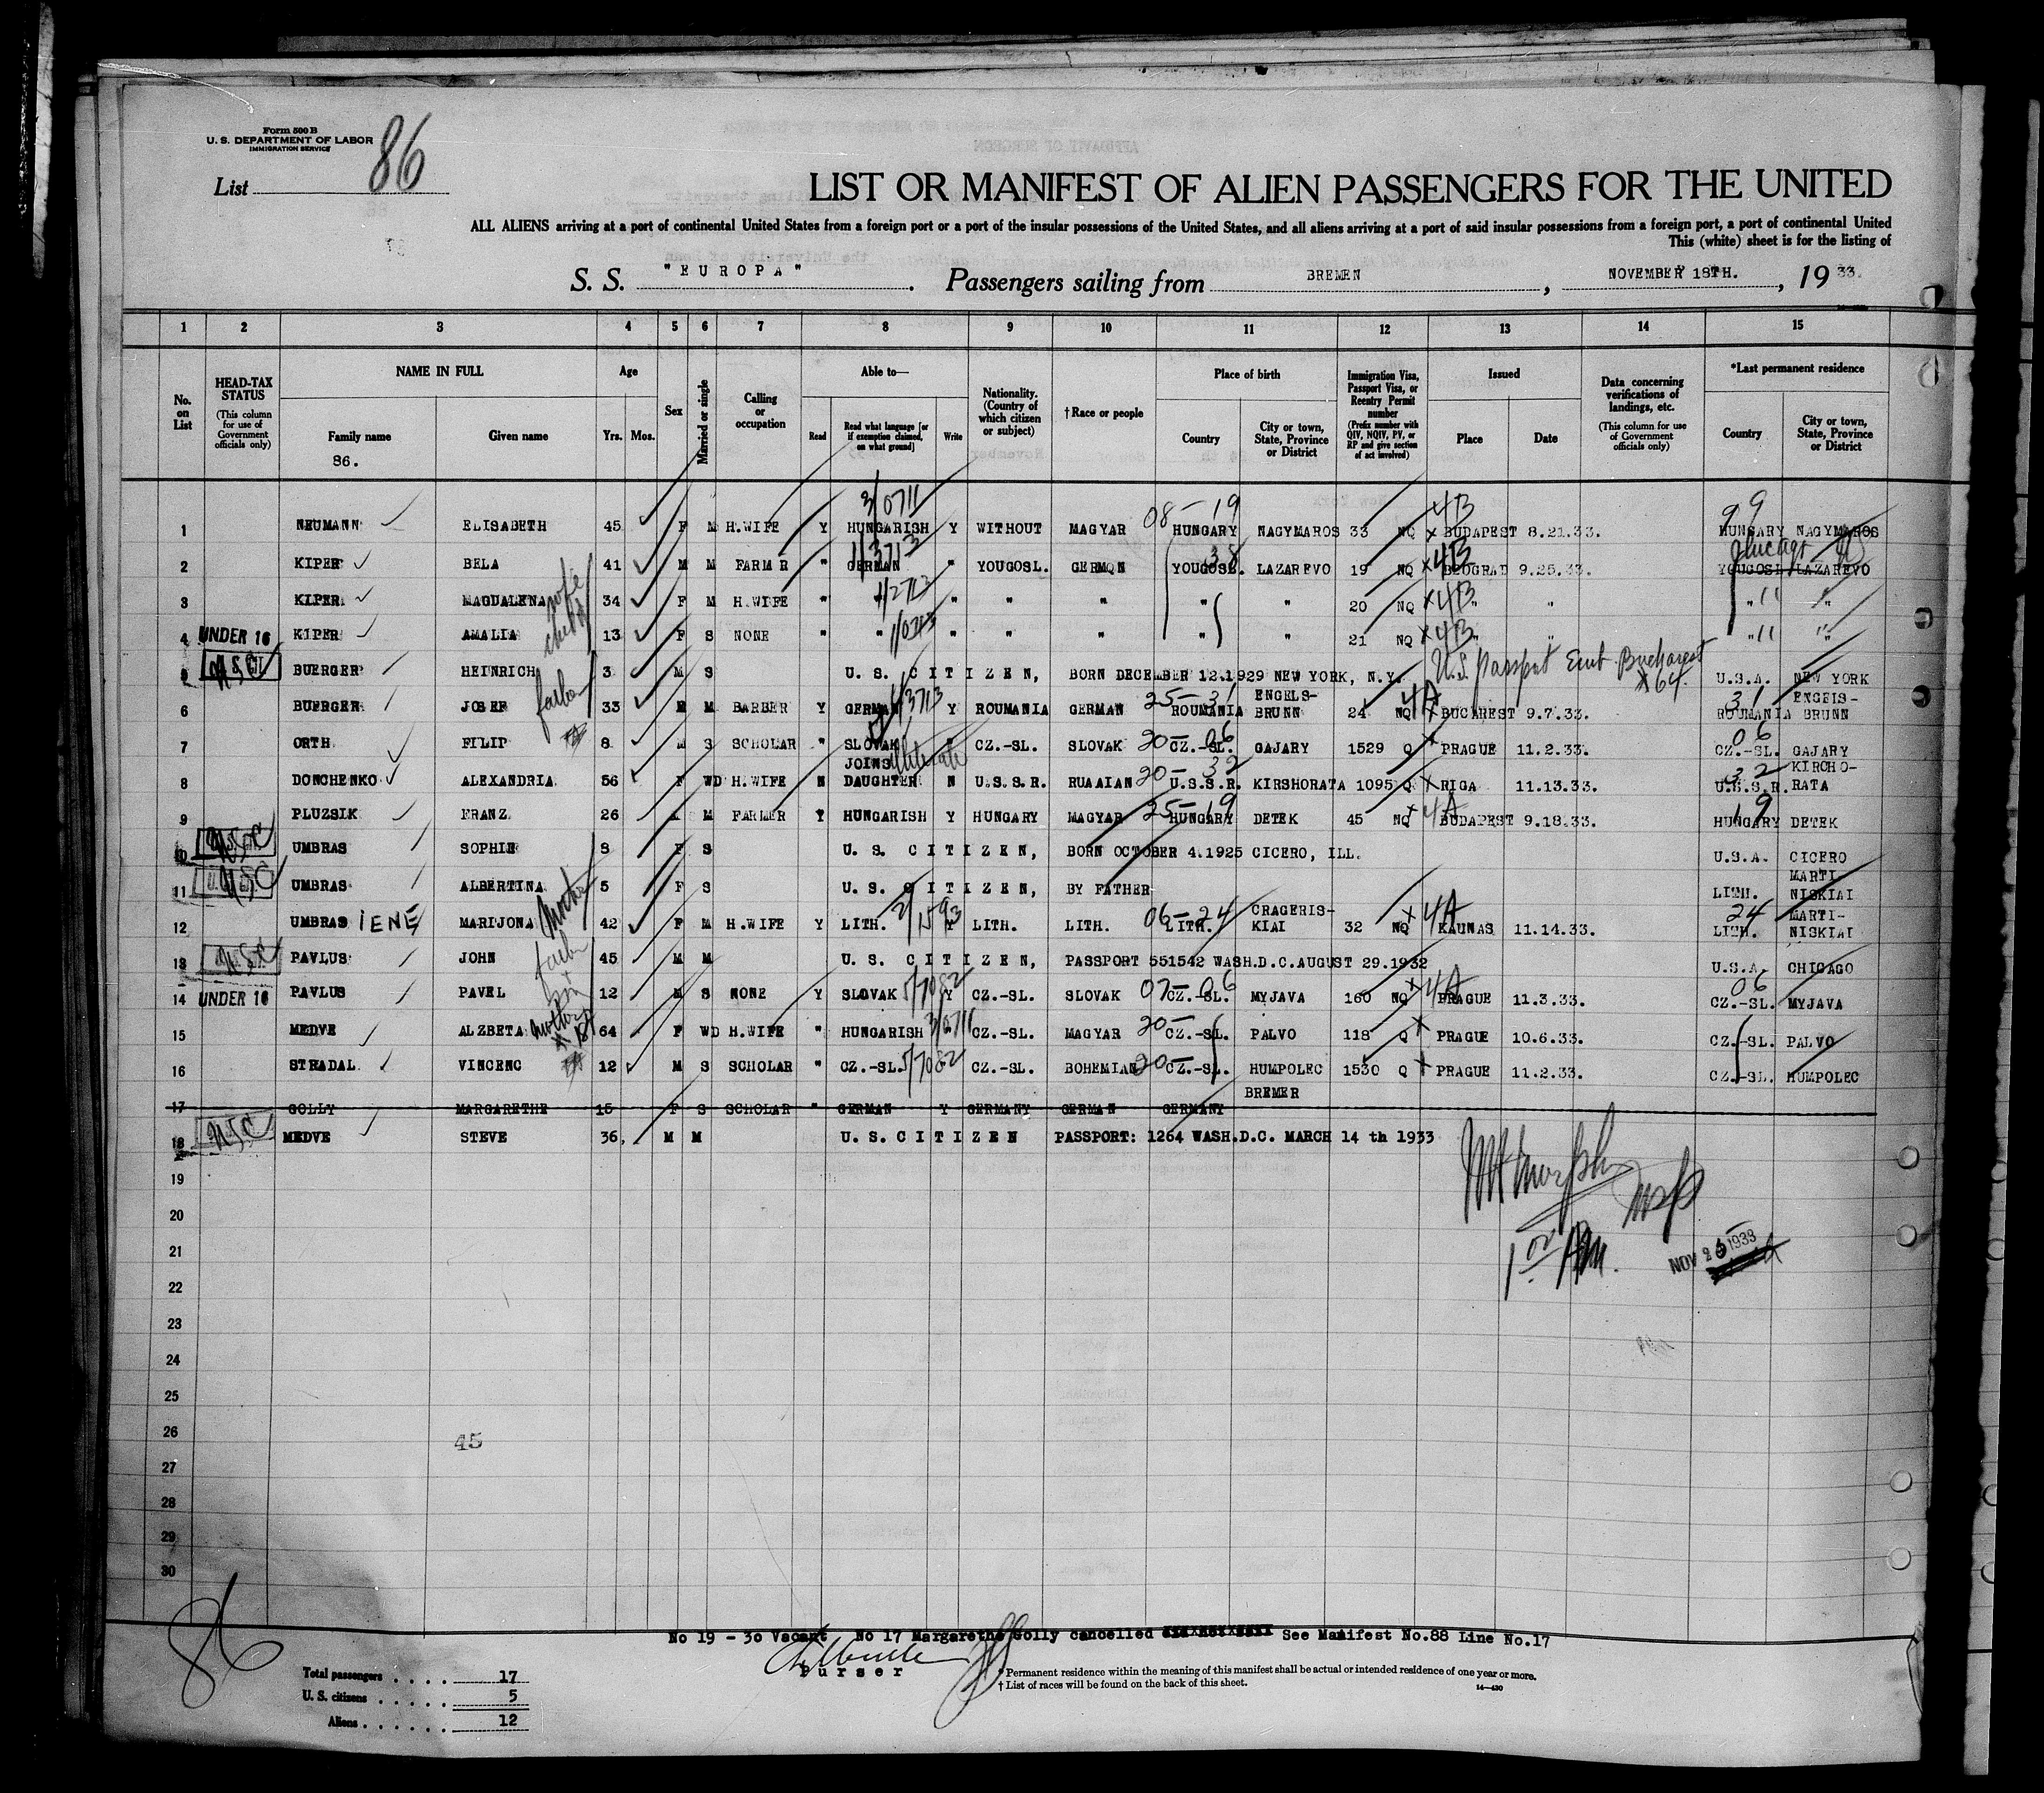 Form 500 B
U. S. DEPARTMENT OF LABOR
IMMIGRATION SERVICE
List 86
LIST OR MANIFEST OF ALIEN PASSENGERS FOR THE UNITED
ALL ALIENS arriving at a port of continental United States from a foreign port or a port of the insular possessions of the United States, and all aliens arriving at a port of said insular possessions from a foreign port, a port of continental United
This (white) sheet is for the listing of
S. S. "EUROPA". Passengers sailing from BREMEN, NOVEMBER 18TH., 1933.
1 2 3 4 5 6 7 8 9 10 11 12 13 14 15
No. on List
HEAD-TAX STATUS (This column for use of Government officials only)
NAME IN FULL Family name Given name
86.
Age Yrs. Mos.
Sex
Married or single
Calling or occupation
Able to— Read Read what language [or if exemption claimed, on what ground] Write
Nationality. (Country of which citizen or subject)
† Race or people
Place of birth Country City or town, State, Province or District
Immigration Visa, Passport Visa, or Reentry Permit number (Prefix number with QIV, NQIV, PV, or RP and give section of act involved)
Issued Place Date
Data concerning verifications of landings, etc. (This column for use of Government officials only)
*Last permanent residence Country City or town, State, Province or District
3/0711 08-19 4B 99
1 NEUMANN ELISABETH 45 F M H.WIFE Y HUNGARISH Y WITHOUT MAGYAR HUNGARY NAGYMAROS 33 NQ X BUDAPEST 8.21.33. HUNGARY NAGYMAROS
1/3713 38 X4B Chicago
2 KIPER BELA 41 M M FARM R " GERMAN " YOUGOSL. GERMQN YOUGOSL. LAZAREVO 19 NQ BEOGRAD 9.25.33. YOUGOSL LAZAREVO
wife X4B
3 KIPER MAGDALENA 34 F M H.WIFE " " " " " " " 20 NQ " " " "
child X4B
4 UNDER 16 KIPER AMALIA 13 F S NONE " " " " " " " 21 NQ " " " "
5 USC BUERGER HEINRICH 3 M S U. S. CITIZEN, BORN DECEMBER 12.1929 NEW YORK, N.Y. U.S. passport Bucharest X64. U.S.A. NEW YORK
father 1/3713 25-31 4A 31
6 BUERGER JOSEF 33 M M BARBER Y GERMAN Y ROUMANIA GERMAN ROUMANIA ENGELS-BRUNN 24 NQ X BUCAREST 9.7.33. ROUMANIA ENGEIS-BRUNN
20-06 06
7 ORTH FILIP 8 M S SCHOLAR " SLOVAK " CZ.-SL. SLOVAK CZ.-SL. GAJARY 1529 Q X PRAGUE 11.2.33. CZ.-SL. GAJARY
illiterate 20-32 32
8 DONCHENKO ALEXANDRIA 56 F WD H.WIFE N JOINS DAUGHTER N U.S.S.R. RUAAIAN U.S.S.R. KIRSHORATA 1095 Q X RIGA 11.13.33. U.S.S.R. KIRCHO-RATA
25-19 X4A 19
9 PLUZSIK FRANZ 26 M FARMER Y HUNGARISH Y HUNGARY MAGYAR HUNGARY DETEK 45 NQ BUDAPEST 9.18.33. HUNGARY DETEK
10 USC UMBRAS SOPHIE 8 F S U. S. CITIZEN, BORN OCTOBER 4.1925 CICERO, ILL. U.S.A. CICERO
11 USC UMBRAS ALBERTINA 5 F S U. S. CITIZEN, BY FATHER LITH. MARTI-NISKIAI
Mother 2/1593 06-24 X4A 24
12 UMBRAS IENE MARIJONA 42 F M H.WIFE Y LITH. Y LITH. LITH. LITH. CRAGERIS-KIAI 32 NQ KAUNAS 11.14.33. LITH. MARTI-NISKIAI
13 USC PAVLUS JOHN 45 M M U. S. CITIZEN, PASSPORT 551542 WASH.D.C.AUGUST 29.1932 U.S.A. CHICAGO
father 5/7082 07-06 X4A 06
14 UNDER 16 PAVLUS PAVEL 12 M S NONE Y SLOVAK Y CZ.-SL. SLOVAK CZ.-SL. MYJAVA 160 NQ PRAGUE 11.3.33. CZ.-SL. MYJAVA
mother 3/0711 20-
15 MEDVE ALZBETA 64 F WD H.WIFE " HUNGARISH CZ.-SL. MAGYAR CZ.-SL. PALVO 118 Q X PRAGUE 10.6.33. CZ.-SL. PALVO
5/7082 20-
16 STRADAL VINCENC 12 M S SCHOLAR " CZ.-SL. CZ.-SL. BOHEMIAN CZ.-SL. HUMPOLEC 1530 Q X PRAGUE 11.2.33. CZ.-SL. HUMPOLEC
17 GOLLY MARGARETHE 15 F S SCHOLAR " GERMAN Y GERMANY GERMAN GERMANY BREMER
18 USC MEDVE STEVE 36. M M U. S. CITIZEN PASSPORT: 1264 WASH.D.C. MARCH 14 th 1933
19
20
21 1 00 PM. NOV 2 1933
22
23
24
25
26 45
27
28
29
30
86
No 19 - 30 Vacant No 17 Margarethe Golly cancelled See Manifest No.88 Line No.17
Purser
Total passengers . . . . 17
U. S. citizens . . . . . . 5
Aliens . . . . . . 12
* Permanent residence within the meaning of this manifest shall be actual or intended residence of one year or more.
† List of races will be found on the back of this sheet.
14—430